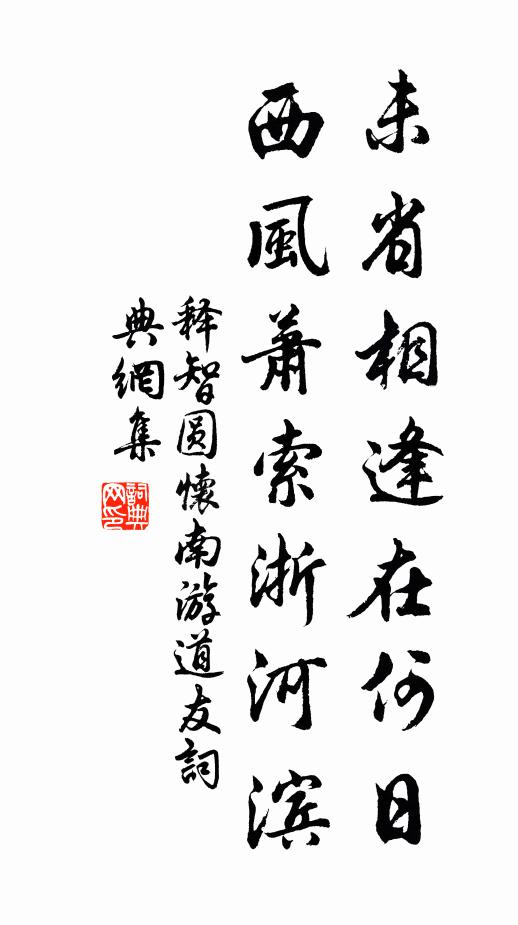 未省相逢在何日
西風蕭索浙河滨
释智圆懷南游道友詞
典網集
詞典
网印